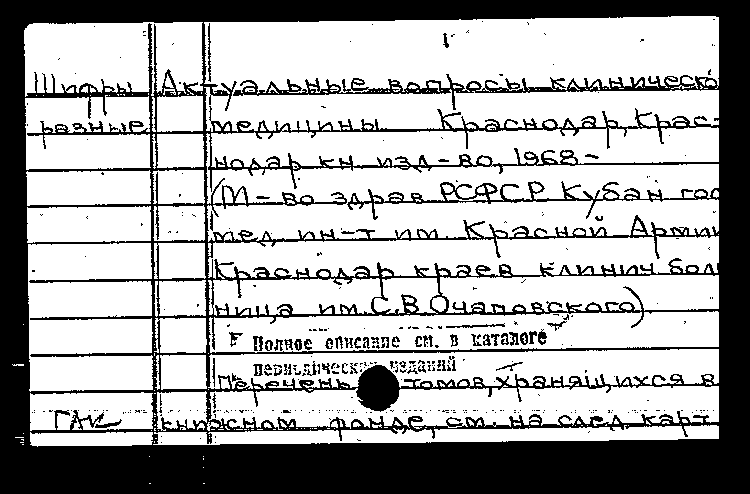 Шифры Актуальные вопросы клиническо
разные медицины Краснодар, Крас-
нодар кн изд-во, 1968-
(М-во здрав РСФСР Кубан гос
мед ин-т им. Красной Армии
Краснодар краев клинич боль
ница им. С.В. Очаповского)
Полное описание см. в каталоге
периодических изданий
Перечень томов, хранящихся в
книжном фонде, см. на след карт